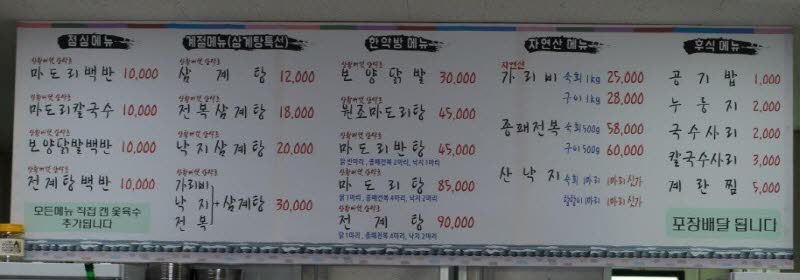 점심메뉴
마도리백반 10,000
마도리칼국수 10,000
보양닭발백반 10,000
전계탕백반 10,000
모든메뉴 직접 캔 옻육수
추가됩니다
계절메뉴(삼계탕특선)
삼계탕 12,000
전복삼계탕 18,000
낙지삼계탕 20,000
가리비
낙지 + 삼계탕 30,000
전복
한약방 메뉴
보양닭발 30,000
원조마도리탕 45,000
마도리반탕 45,000
닭 반마리, 종패전복 2마리, 낙지 1마리
마도리탕 85,000
닭 1마리, 종패전복 4마리, 낙지 2마리
전계탕 90,000
닭 1마리, 종패전복 4마리, 낙지 2마리
자연산 메뉴
자연산
가리비 숙회 1kg 25,000
구이 1kg 28,000
종패전복 숙회 500g 58,000
구이 500g 60,000
산낙지 숙회 1마리 1마리 싯가
탕탕이 1마리 1마리 싯가
후식 메뉴
공기밥 1,000
누룽지 2,000
국수사리 2,000
칼국수사리 3,000
계란찜 5,000
포장배달 됩니다